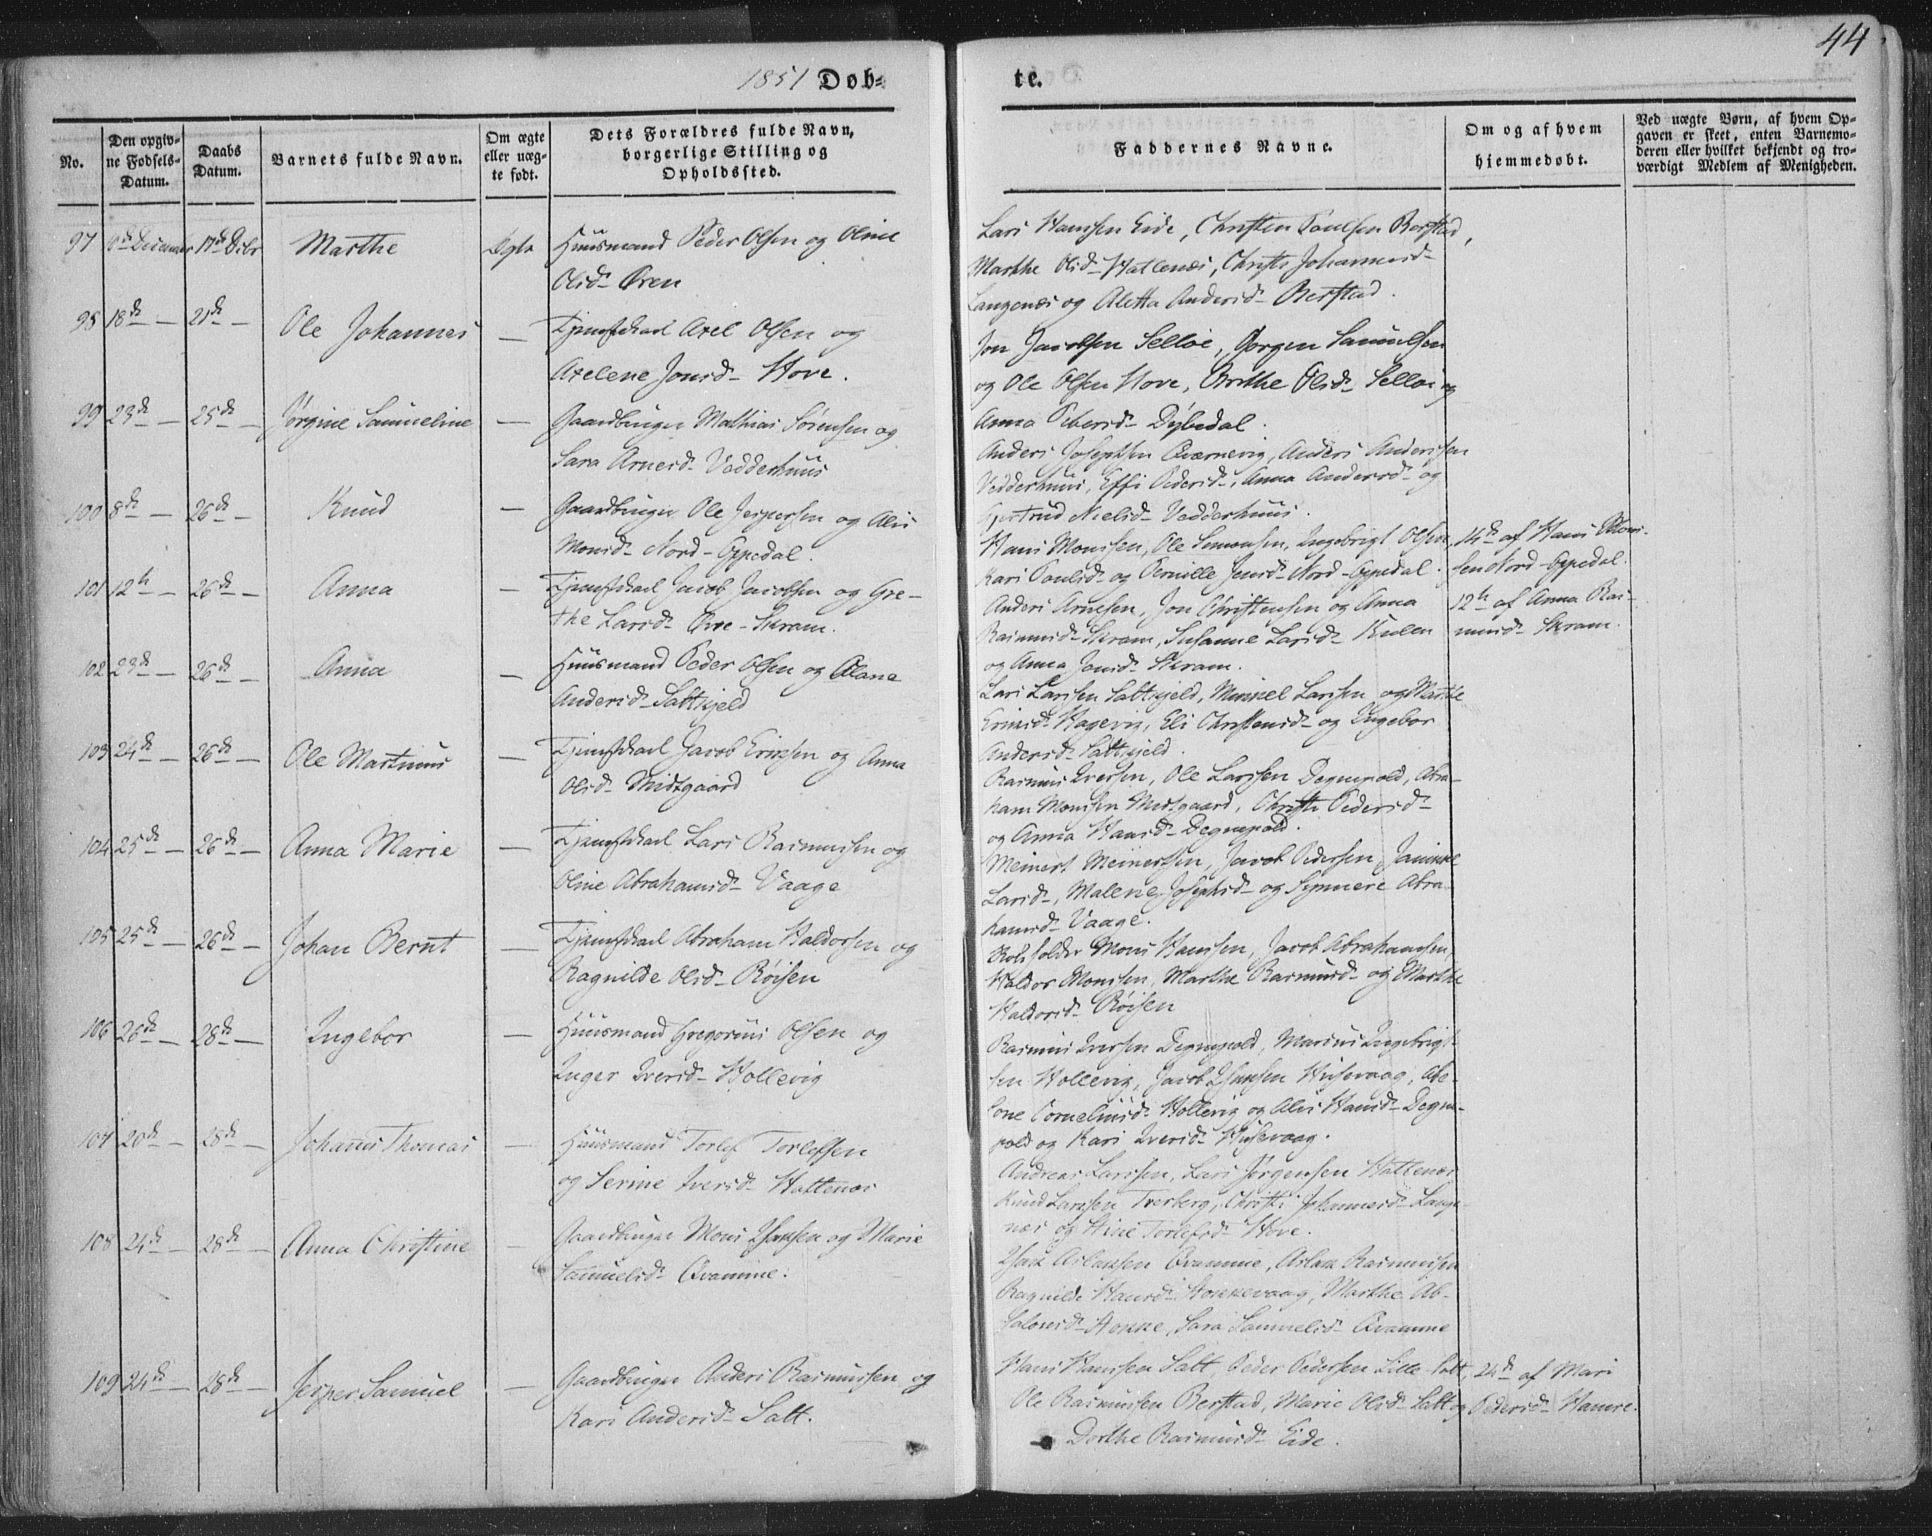 44
1851 Døb-
te.
No.
Den opgiv-
ne Fødsels-
Datum.
Daabs
Datum.
Barnets fulde Navn.
Om ægte
eller uæg-
te født.
Dets Forældres fulde Navn,
borgerlige Stilling og
Opholdssted.
Faddernes Navne.
Om og af hvem
hjemmedøbt.
Ved uægte Børn, af hvem Op-
gaven er skeet, enten Barnemo-
deren eller hvilket bekjendt og tro-
værdigt Medlem af Menigheden.
97 Decemer 17de Dcbr Marthe Ægte Huusmand Peder Olsen og Oline
Olsd- Øren
Lars Hanssen Eide, Christen Poulsen Berstad,
Marthe Olsd- Hatlenæs, Christi Johannesd-
Langenæs og Aletta Andersd- Berstad.
98 18de — 21de — Ole Johannes — Tjenestkarl Axel Olsen og
Axelene Jonsd- Hove.
Jon Jacobsen Selløe, Jørgen Samuelsen
og Ole Olsen Hove, Brithe Olsd- Selløe og
Anna Pedersd- Dybedal.
99 23de — 25de — Jørgine Samueline — Gaardbruger Mathias Sørensen og
Sara Arnesd- Vedderhuus
Anders Josephsen Qværnevig, Anders Anderssen
Vedderhuus, Effi Pedersd-, Anna Andersd- og
Gjertrud Nielsd- Vedderhuus.
100 8de — 26de — Knud — Gaardbruger Ole Jespersen og Alis
Monsd- Nord-Oppedal.
Hans Monssen, Ole Simonsen, Ingebrigt Olsen,
Kari Poulsd- og Pernille Jensd- Nord-Oppedal.
14de af Hans Mons-
sen Nord-Oppedal.
101 12te — 26de — Anna — Tjenestkarl Jacob Jacobsen og Gre-
the Larsd- Øvre-Skram.
Anders Arnesen, Jon Christensen og Anna
Rasmusd- Skram, Susanne Larsd- Kulen
og Anna Jonsd- Skram.
12te af Anna Ras-
musd- Skram.
102 23de — 26de — Anna — Huusmand Peder Olsen og Olane
Andersd- Saltskjeld
Lars Larssen Saltskjeld, Mikkel Larssen og Marthe
Eriksd- Hagevig, Eli Christensd- og Ingebor
Andersd- Saltskjeld.
103 24de — 26de — Ole Martinus — Tjenestkarl Jacob Erikssen og Anna
Olsd- Midtgaard
Rasmus Iversen, Ole Larssen Degnepold, Abra-
ham Monssen Midtgaard, Christi Pedersd-
og Anna Hansd- Degnepold.
104 25de — 26de — Anna Marie — Tjenestkarl Lars Rasmussen og
Oline Abrahamsd- Vaage
Meinert Meinertsen, Jacob Pedersen, Jannike
Larsd-, Malene Josephsd- og Synneve Abra-
hamsd- Vaage.
105 25de — 26de — Johan Bernt — Tjenestkarl Abraham Haldorsen og
Ragnilde Olsd- Røisen
Mons Hanssen, Jacob Abrahamsen,
Haldor Monssen, Marthe Rasmusd- og Marthe
Haldorsd- Røisen
106 26de — 28de — Ingebor — Huusmand Gregorius Olsen og
Inger Iversd- Hollevig
Rasmus Iversen Degnepold, Marius Ingebrigt-
sen Hollevig, Jacob Isaksen Husevaag, Abe-
lone Corneliusd- Hollevig og Alis Hansd- Degne-
pold og Kari Iversd- Husevaag.
107 20de — 28de — Johans Thomas — Huusmand Torlef Torlefsen
og Serine Iversd- Hatlenæs
Andreas Larssen, Lars Jørgensen Hatlenæs
Knud Larssen Tverberg, Christi Johannesd- Lange-
næs og Stine Torlefsd- Hove.
108 24de — 28de — Anna Christine — Gaardbruger Mons Isaksen og Marie
Samuelsd- Qvamme.
Isak Aslaksen Qvamme, Aslak Rasmussen
Ragnilde Hansd- Hokkevaag, Marthe Ab-
salonsd- Hokke, Sara Samuelsd- Qvamme
109 24de — 28de — Jesper Samuel — Gaardbruger Anders Rasmussen og
Kari Andersd- Salt.
Hans Hanssen Salt, Peder Pedersen Lille-Salt,
Ole Rasmussen Berstad, Marie Olsd- Salt og
Dorthe Rasmusd- Eide.
24de af Mari
Pedersd- Hamre.